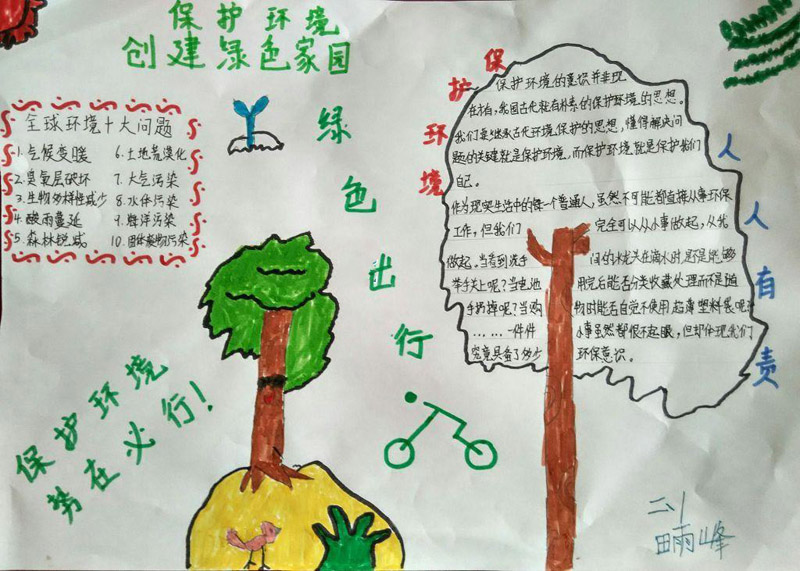 保护环境
创建绿色家园
全球环境十大问题
1.气候变暖
2.臭氧层破坏
3.生物多样性减少
4.酸雨蔓延
5.森林锐减
6.土地荒漠化
7.大气污染
8.水体污染
9.海洋污染
10.固体废物污染
绿色出行
保护环境
势在必行!
保护环境
保护环境的意识并非现
在才有,我国古代就有朴素的保护环境的思想。
我们要继承古代环境保护的思想,懂得解决问
题的关键就是保护环境,而保护环境就是保护我们
自己。
作为现实生活中的每一个普通人,虽然不可能都直接从事环保
工作,但我们 完全可以从小事做起,从我
做起,当看到洗手 间的水龙头在滴水时,是否能够
举手关上呢?当电池 用完后能否分类收藏处理而不是随
手扔掉呢?当购 物时能否自觉不使用超薄塑料袋呢?
……一件件 小事虽然都很不起眼,但却体现我们
究竟具备了多少 环保意识。
人人有责
二、1
田雨峰